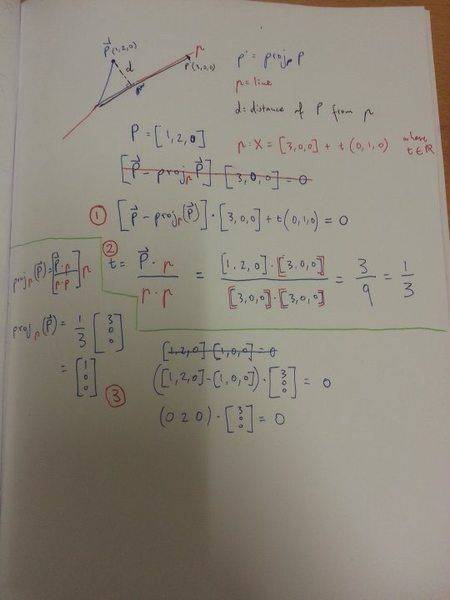 P⃗ (1,2,0)
r
P(3,0,0)
d
P'
p' = proj_r P
r = line
d = distance of P from r
P = [1,2,0]
r: X = [3,0,0] + t(0,1,0) where t ∈ ℝ
[P⃗ - proj_r P⃗] [3,0,0] = 0
① [P⃗ - proj_r(P⃗)] · [3,0,0] + t(0,1,0) = 0
② t = P⃗·r / r·r = [1,2,0]·[3,0,0] / [3,0,0]·[3,0,0] = 3/9 = 1/3
proj_r(P⃗) = [P⃗·r / r·r] r
proj_r(P⃗) = 1/3 [3 0 0]
= [1 0 0]
③ [1,2,0] · [1,0,0] = 0
([1,2,0] - [1,0,0]) · [3 0 0] = 0
(0 2 0) · [3 0 0] = 0